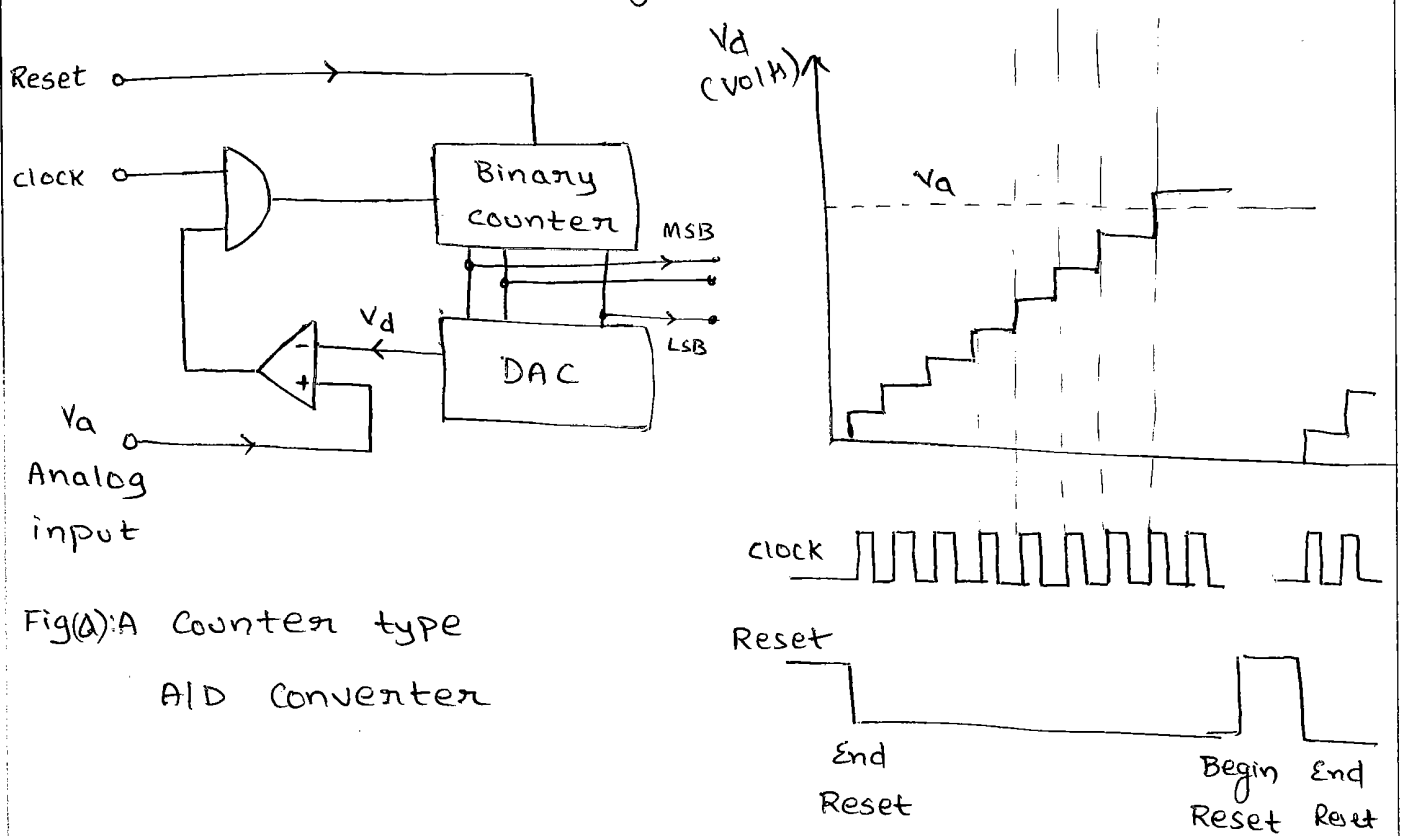 Reset
clock
Binary
counter
MSB
LSB
Vd
DAC
-
+
Va
Analog
input
Fig(a):A Counter type
A/D Converter
Vd
(volts)
Va
clock
Reset
End
Reset
Begin
Reset
End
Reset